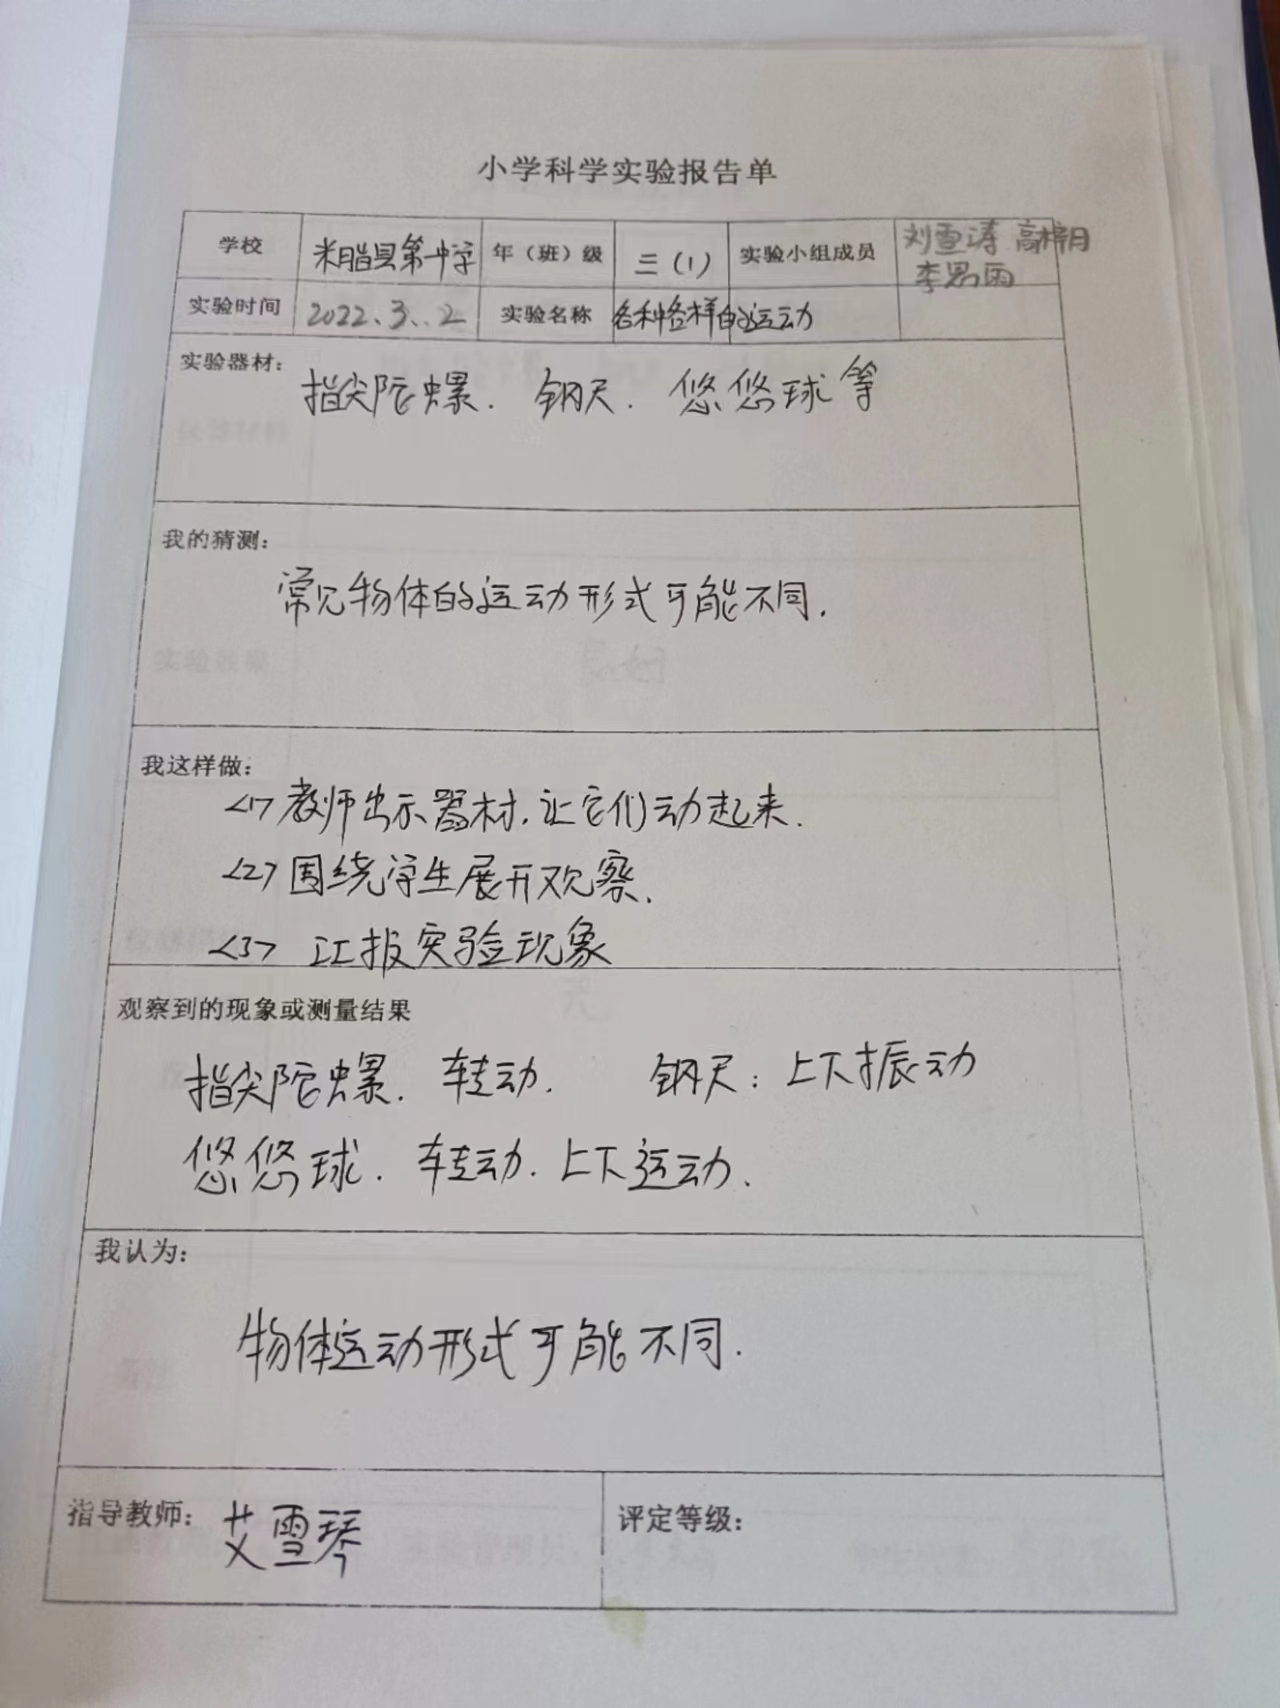 小学科学实验报告单
学校 米脂县第一中学 年（班）级 三（1） 实验小组成员 刘雪涛 高梓月
李思雨
实验时间 2022.3.2 实验名称 各种各样的运动
实验器材：
指尖陀螺. 钢尺. 悠悠球等
我的猜测：
常见物体的运动形式可能不同.
我这样做：
<1>教师出示器材,让它们动起来.
<2>围绕学生展开观察.
<3> 汇报实验现象
观察到的现象或测量结果
指尖陀螺. 转动. 钢尺：上下振动
悠悠球. 转动. 上下运动.
我认为：
物体运动形式可能不同.
指导教师： 艾雪琴 评定等级：